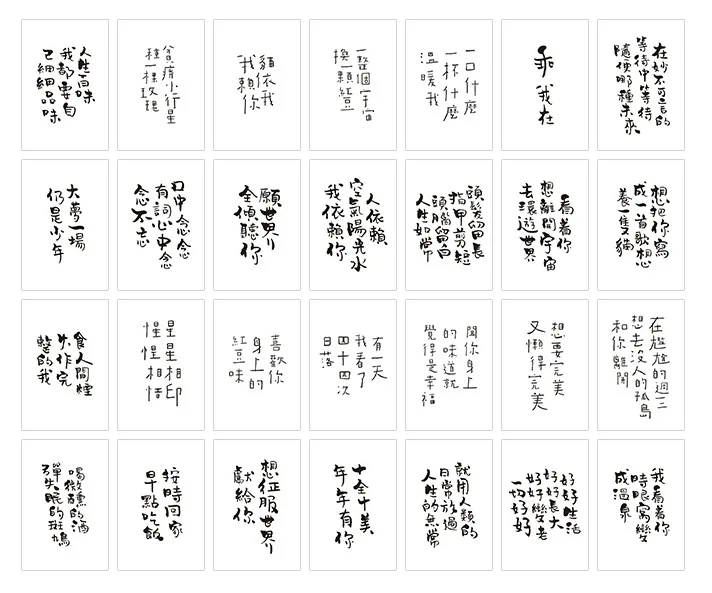 人生百味
我都要自
己細細品味
貧瘠小行星
種一棵玫瑰
貓依我
我賴你
一整個宇宙
換一顆紅豆
一口什麼
一杯什麼
溫暖我
乖 我在
在妙不可言的
等待中等待
隨便哪種未來
大夢一場
仍是少年
口中念念
有詞心中念
念不忘
願世界
全傾聽你
人依賴
空氣陽光水
我依賴你
頭髮留長
指甲剪短
頭腦留白
人生如常
看着你
想離開宇宙
去環遊世界
想把你寫
成一首歌想
養一隻貓
食人間煙
火作完
整的我
星星相印
惺惺相惜
喜歡你
身上的
紅豆味
有一天
我看了
四十四次
日落
聞你身上
的味道就
覺得是幸福
想要完美
又懶得完美
在尷尬的週三
想去沒人的孤島
和你離開
喝微醺的酒
彈失眠的斑鳩
按時回家
早點吃飯
想征服世界
獻給你
十全十美
年年有你
就用人類的
日常放過
人生的無常
好好生活
好好長大
好好變老
一切好好
我看着你
時眼窩變
成溫泉